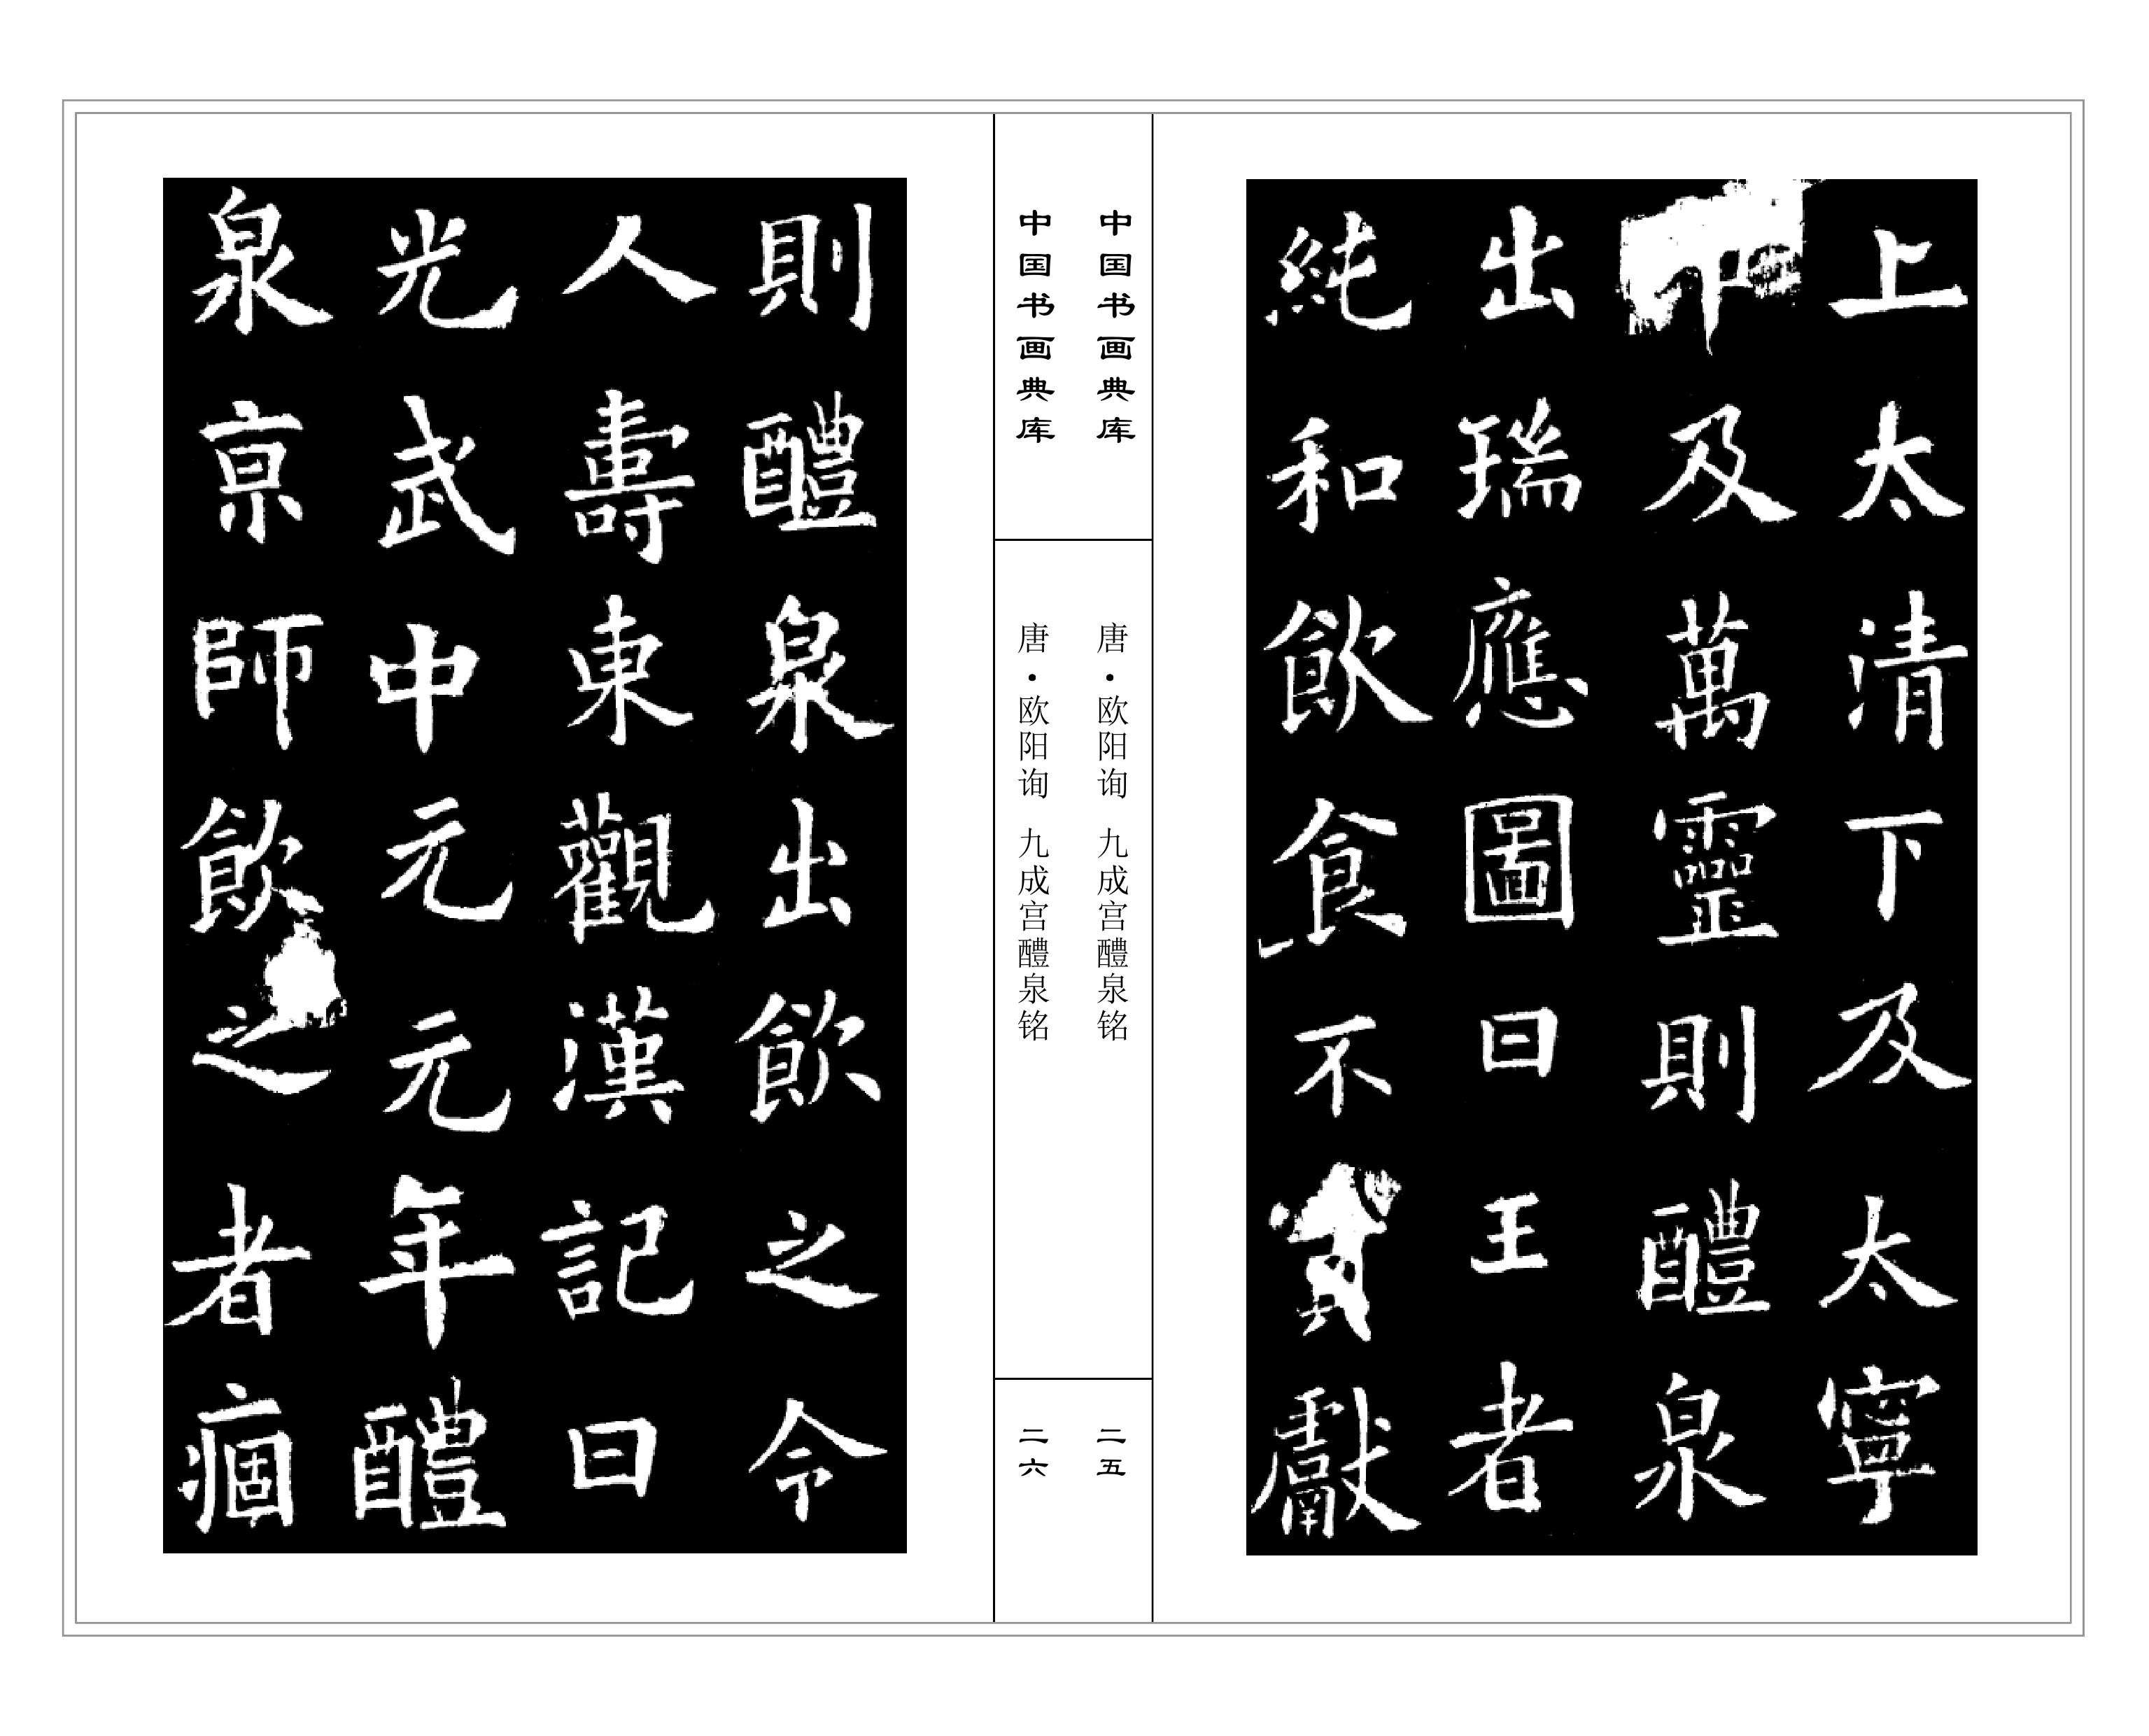 上太清下及太寧
中及萬靈則醴泉
出瑞應圖曰王者
純和飲食不貢獻
中国书画典库
唐·欧阳询 九成宫醴泉铭
二五
中国书画典库
唐·欧阳询 九成宫醴泉铭
二六
則醴泉出飲之令
人壽東觀漢記曰
光武中元元年醴
泉亰師飲之者痼